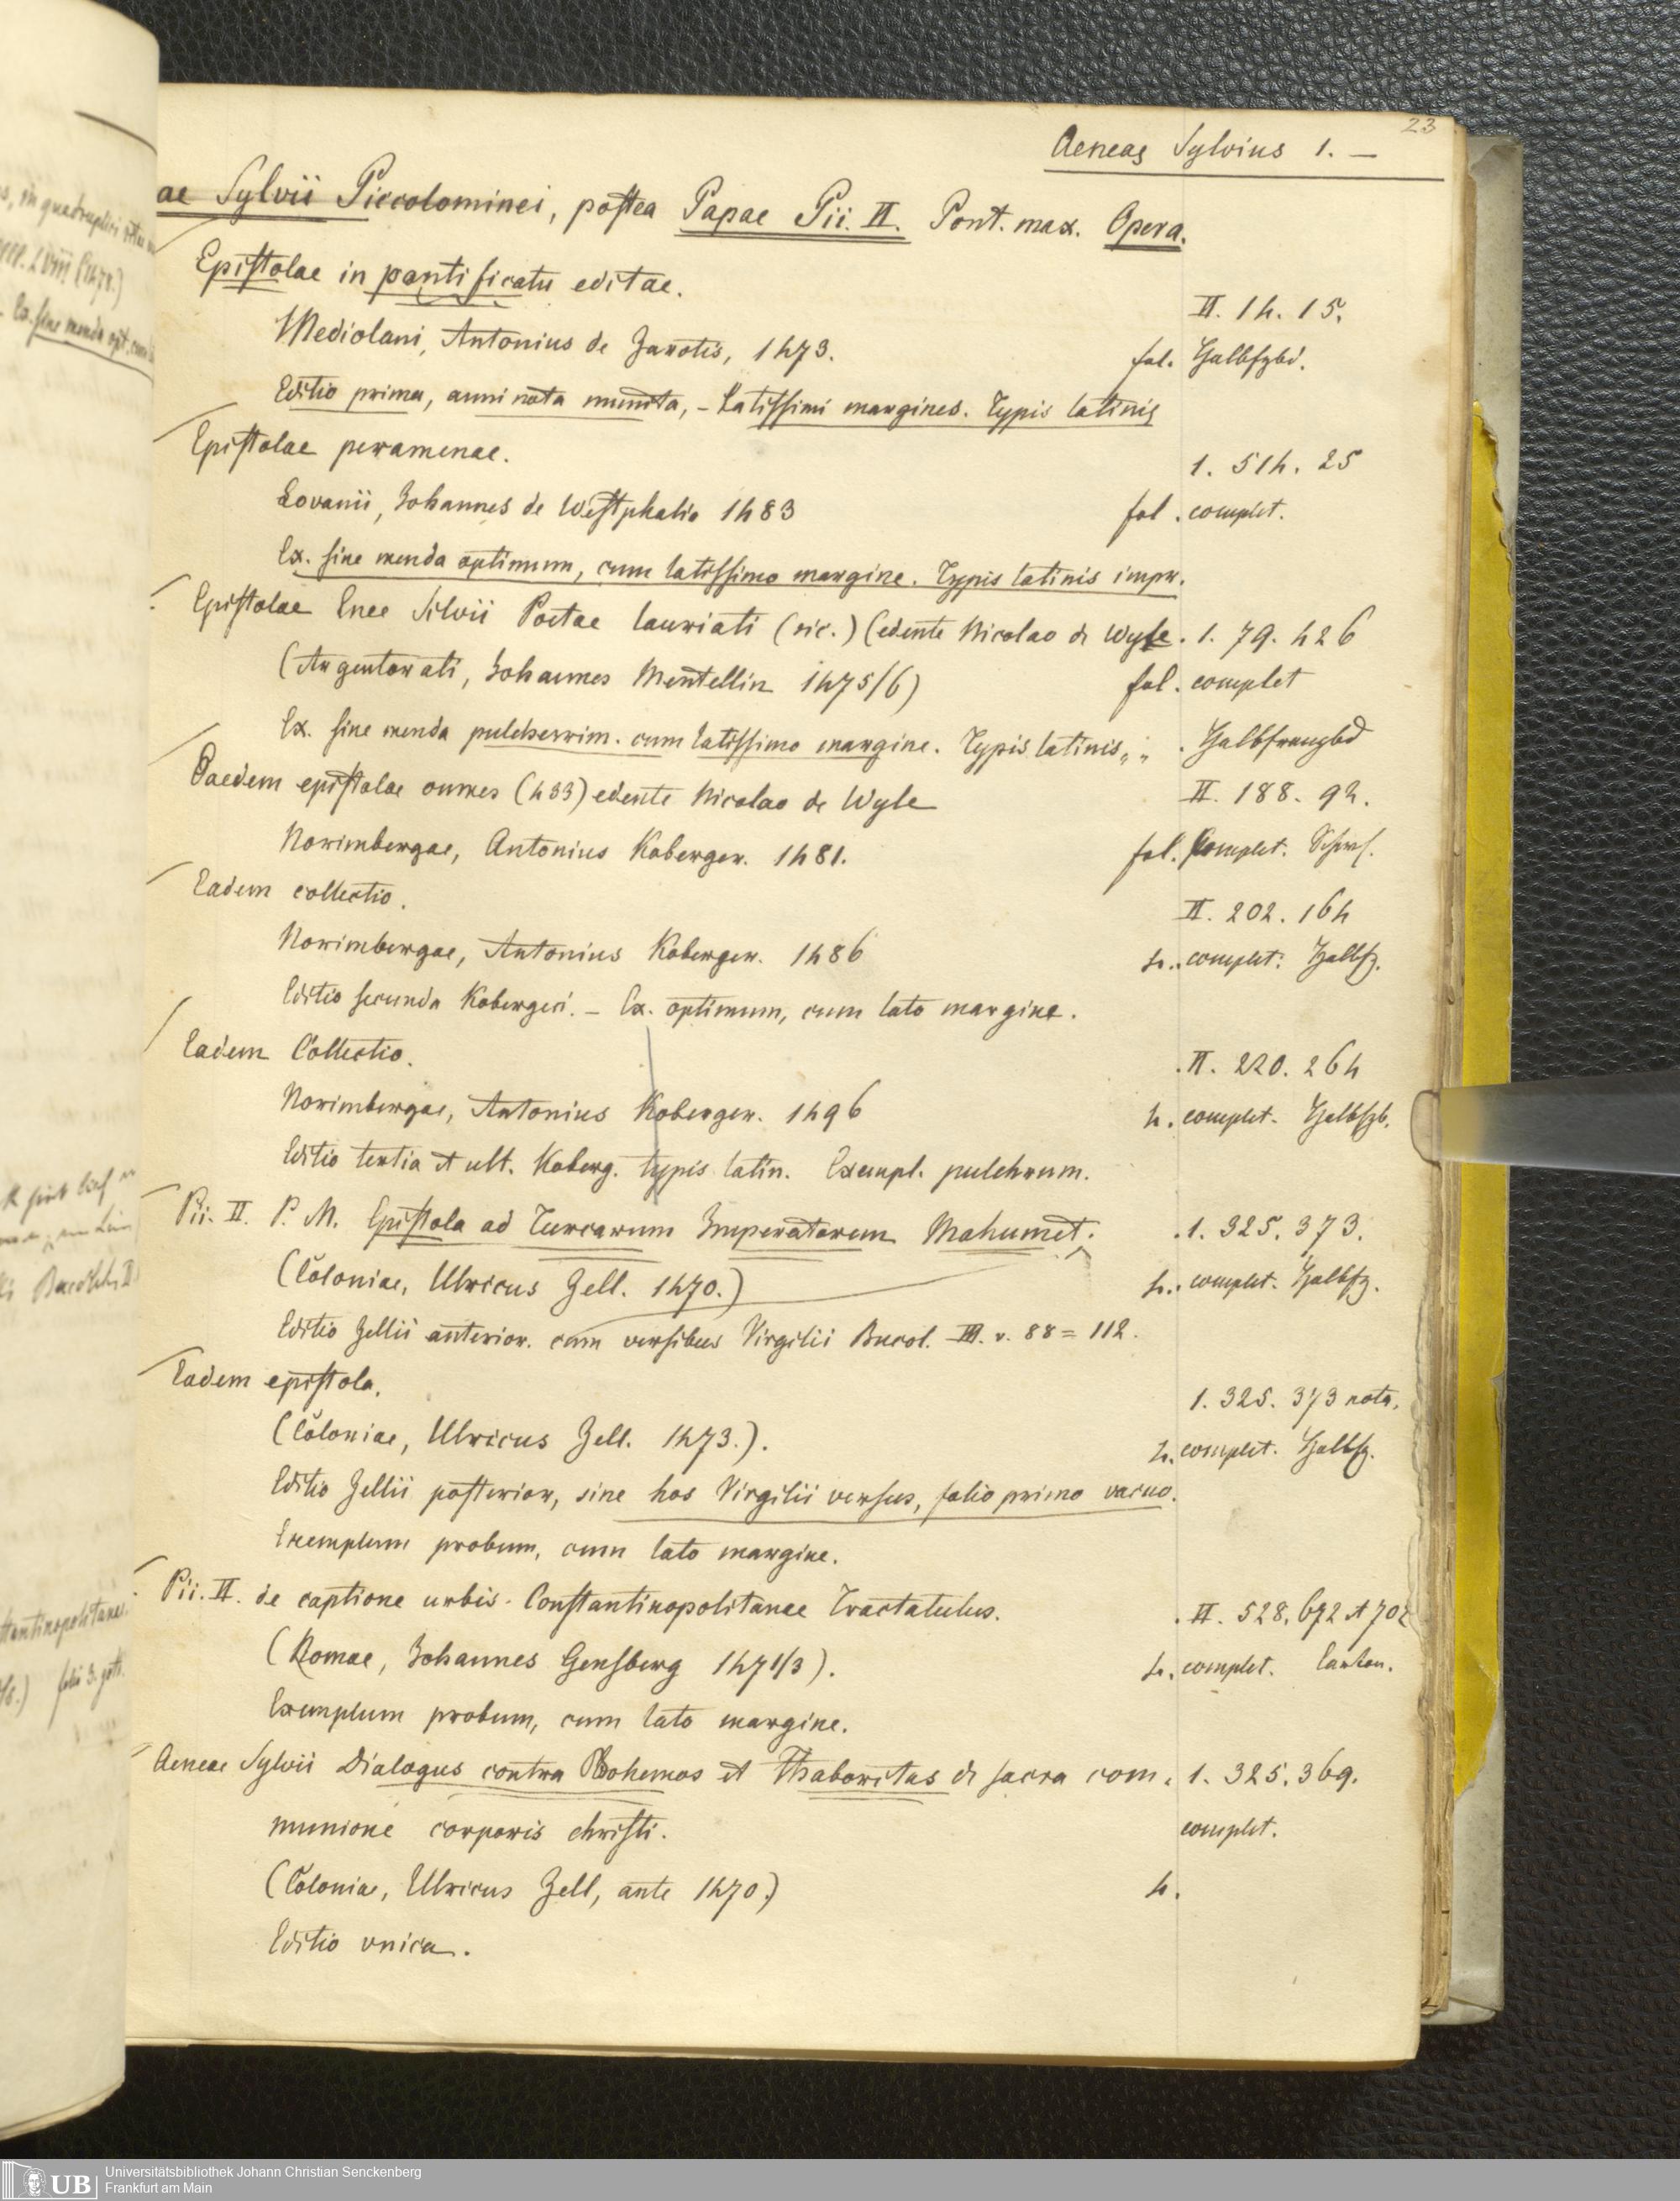 23
Aeneas Sylvius 1. —
ae Sylvii Piccolominei, postea Papae Pii. II. Pont. max. Opera.
Epistolae in pontificatu editae.
II. 14. 15.
Mediolani, Antonius de Zarotis, 1473. fol. Halbfzbd.
Editio prima, anni nota munita, – Latissimi margines. Typis latinis
Epistolae peramenae.
1. 514. 25
Lovanii, Johannes de Westphalia 1483 fol. complet.
Ex. sine menda optimum, cum latissimo margine. Typis latinis impr.
Epistolae Enee Silvii Poetae lauriati (sic.) (edente Nicolao de Wyle. 1. 79. 426
(Argentorati, Johannes Mentellin 1475/6) fol. complet
Ex. sine menda pulcherrim. cum latissimo margine. Typis latinis „ „ . Halbfranzbd
Eaedem epistolae omnes (433) edente Nicolao de Wyle II. 188. 94.
Norimbergae, Antonius Koberger. 1481. fol. Complet.
Eadem collectio.
II. 202. 164
Norimbergae, Antonius Koberger. 1486 4. complet. Halbfz.
Editio secunda Kobergeri. – Ex. optimum, cum lato margine.
Eadem Collectio.
II. 220. 264
Norimbergae, Antonius Koberger. 1496 4. complet. Halbfzb.
Editio tertia et ult. Koberg. typis latin. Exempl. pulchrum.
Pii. II. P. M. Epistola ad Turcarum Imperatorem Mahumet. 1. 325. 373.
(Coloniae, Ulricus Zell. 1470.) 4. complet. Halbfz.
Editio Zellii anterior. cum versibus Virgilii Bucol. III. v. 88 = 112.
Eadem epistola.
1. 325. 373 nota.
(Coloniae, Ulricus Zell. 1473.). 4. complet. Halbfz.
Editio Zellii posterior, sine hos Virgilii versus, folio primo vacuo.
Exemplum probum, cum lato margine.
Pii. II. de captione urbis Constantinopolitanae Tractatulus. II. 528. 672 et 702
(Romae, Johannes Gensberg 1471/3). 4. complet. Carton.
Exemplum probum, cum lato margine.
Aeneae Sylvii Dialogus contra Bohemos et Thaboritas de sacra com- 1. 325. 369.
munione corporis christi. complet.
(Coloniae, Ulricus Zell, ante 1470.) 4.
Editio unica.
UB
Universitätsbibliothek Johann Christian Senckenberg
Frankfurt am Main